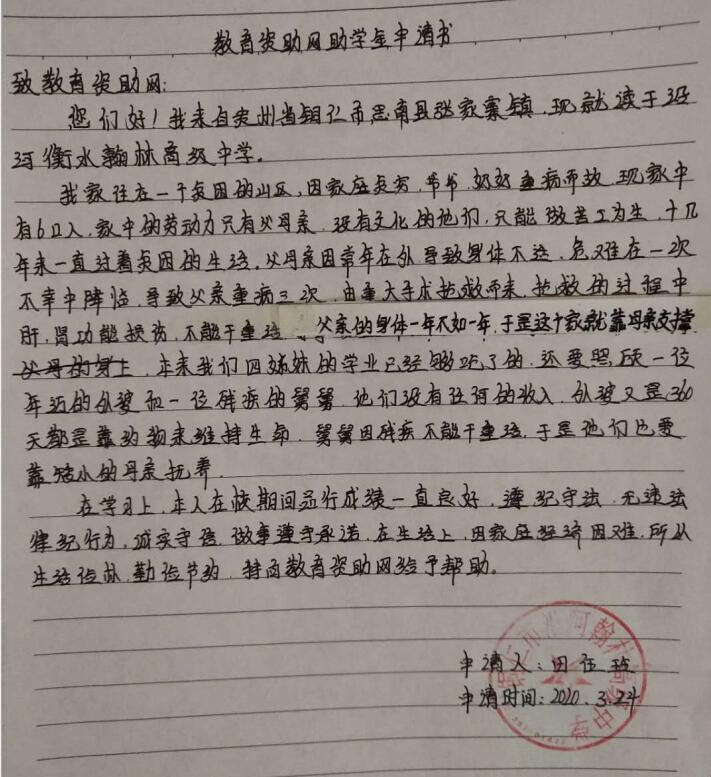 教育资助网助学金申请书
致教育资助网:
您们好!我来自贵州省铜仁市思南县张家寨镇,现就读于沿
河衡水翰林高级中学。
我家住在一个贫困的山区,因家庭贫穷,爷爷、奶奶重病而故,现家中
有6口人,家中的劳动力只有父母亲,没有文化的他们,只能做苦工为生,十几
年来一直过着贫困的生活。父母亲因常年在外导致身体不适,危难在一次
不幸中降临,导致父亲重病三次,由重大手术抢救而来,抢救的过程中
肝,肾功能损伤,不能干重活,父亲的身体一年不如一年,于是这个家就靠母亲支撑
,本来我们四姊妹的学业已经够吃了的,还要照顾一位
年迈的外婆和一位残疾的舅舅,他们没有任何的收入,外婆又是360
天都是靠药物来维持生命,舅舅因残疾不能干重活,于是他们也要
靠矮小的母亲抚养.
在学习上,本人在校期间品行成绩一直良好,遵纪守法,无违法
律纪行为,诚实守信,做事遵守承诺,在生活上,因家庭经济困难,所以
生活俭朴,勤俭节约,特向教育资助网给予帮助。
申请人:田
申请时间:2020.3.24